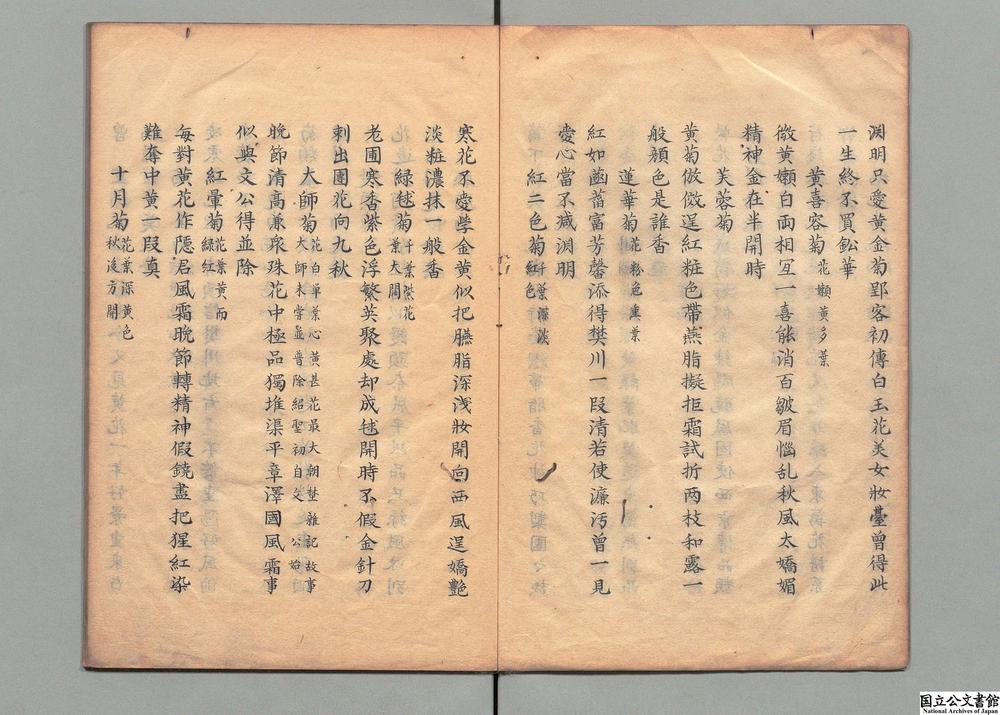 渊明只愛黄金菊郢客初傳白玉花美女妝臺曾得此
一生終不買鈆華
黄喜容菊花嫰黄多葉
微黄嫰白両相冝一喜能消百皺眉惱乱秋風太嬌媚
精神金在半開時
芙蓉菊
黄菊倣傚逞紅粧色帶燕脂擬拒霜試折两枝和露一
般顔色是誰香
蓮華菊花粉色葉
紅如菡萏富芳馨添得樊川一段清若使濂汚曾一見
愛心當不减渊明
紅二色菊千葉深淡紅色
寒花不愛學金黄似把臙脂深浅妝開向西風逞嬌艶
淡粧濃抹一般香
緑毬菊千葉紫花葉大開
老圃寒香紫色浮繁英聚處却成毬開時不假金針刀
刺出團花向九秋
太師菊花白單葉心黄甚花最大朝埜雜記故事大師未嘗並普除紹聖初自文公始
晚節清高兼衆珠花中極品獨堆渠平章澤國風霜事
似與文公得並除
紅暈菊花葉黄而緑紅
每對黄花作隠君風霜晚節轉精神假鐃盡把猩紅染
難奪中黄一叚真
十月菊花葉深黄色秋後方開
国立公文書館
National Archives of Japan